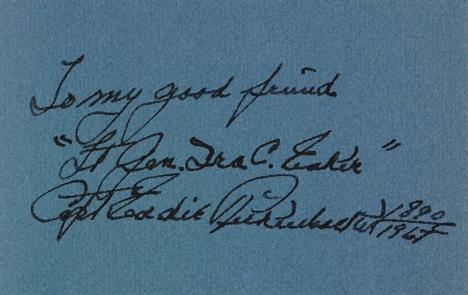 To my good friend
"Lt Gen. Ira C. Eaker"
Capt Eddie Rickenbacker 1890
1967